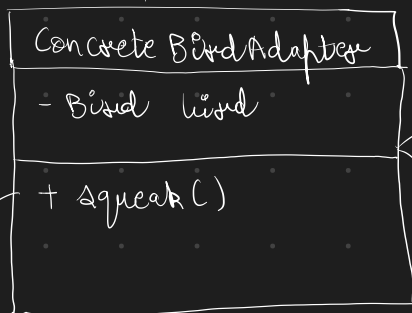 Concrete BirdAdapter
- Bird bird
+ squeak()